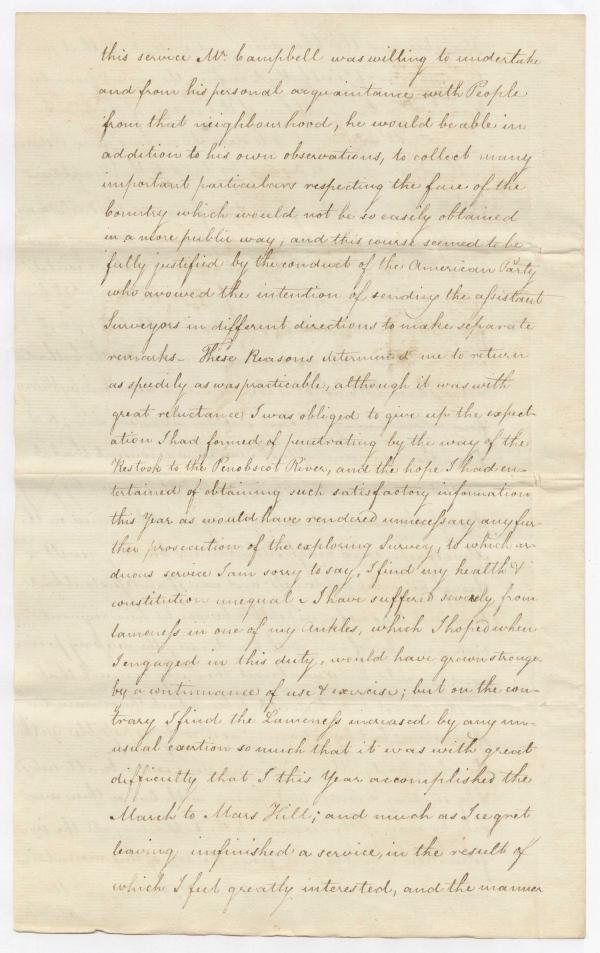 this service Mr. Campbell was willing to undertake
and from his personal acquaintance with People
from that neighbourhood, he would be able in
addition to his own observations, to collect many
important particulars respecting the face of the
Country which would not be so easily obtained
in a more public way, and this course seemed to be
fully justified by the conduct of the American Party
who avowed the intention of sending the assistant
Surveyors in different directions to make separate
remarks. These Reasons determined me to return
as speedily as was practicable, although it was with
great reluctance I was obliged to give up the expect-
ation I had formed of penetrating by the way of the
Restook to the Penobscot River, and the hope I had en-
tertained of obtaining such satisfactory information
this Year as would have rendered unnecessary any fur-
ther prosecution of the exploring Survey, to which ar-
duous service I am sorry to say, I find my health &
constitution unequal. I have suffered severely from
lameness in one of my Ankles, which I hoped when
I engaged in this duty, would have grown stronger
by a continuance of use & exercise; but on the con-
trary I find the Lameness increased by any un-
usual exertion so much that it was with great
difficulty that I this Year accomplished the
March to Mars Hill; and much as I regret
leaving unfinished a service, in the result of
which I feel greatly interested, and the manner